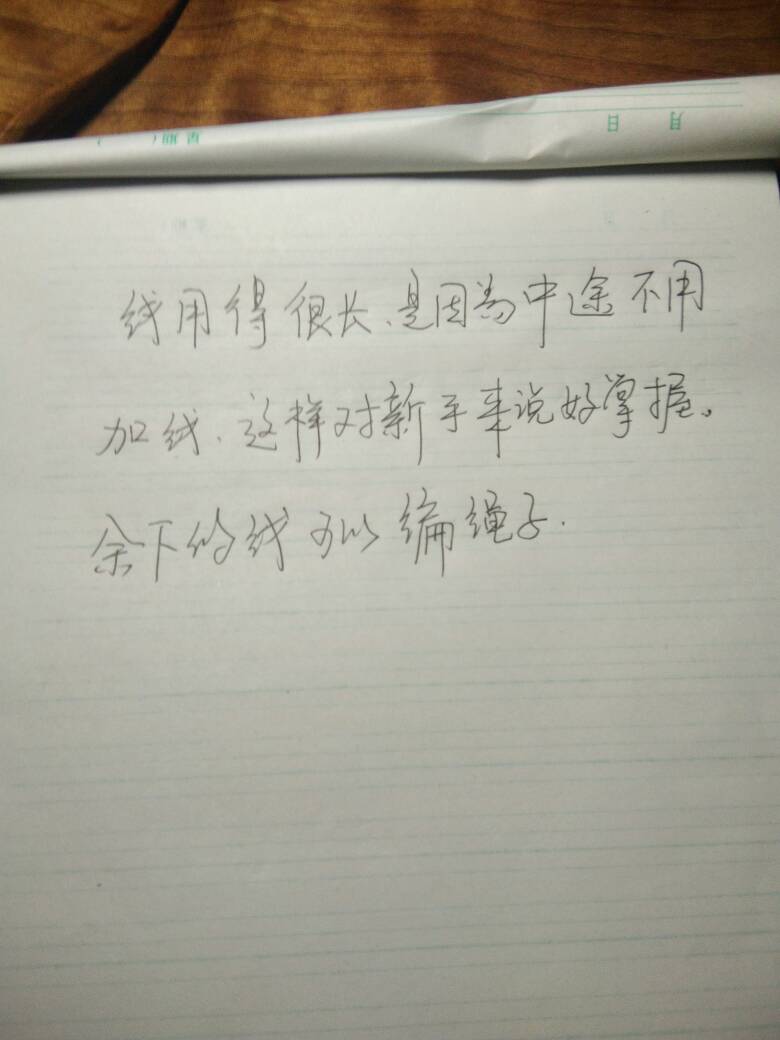 月 日
星期( )
线用得很长、是因为中途不用
加线、这样对新手来说好掌握。
余下的线可以编绳子.